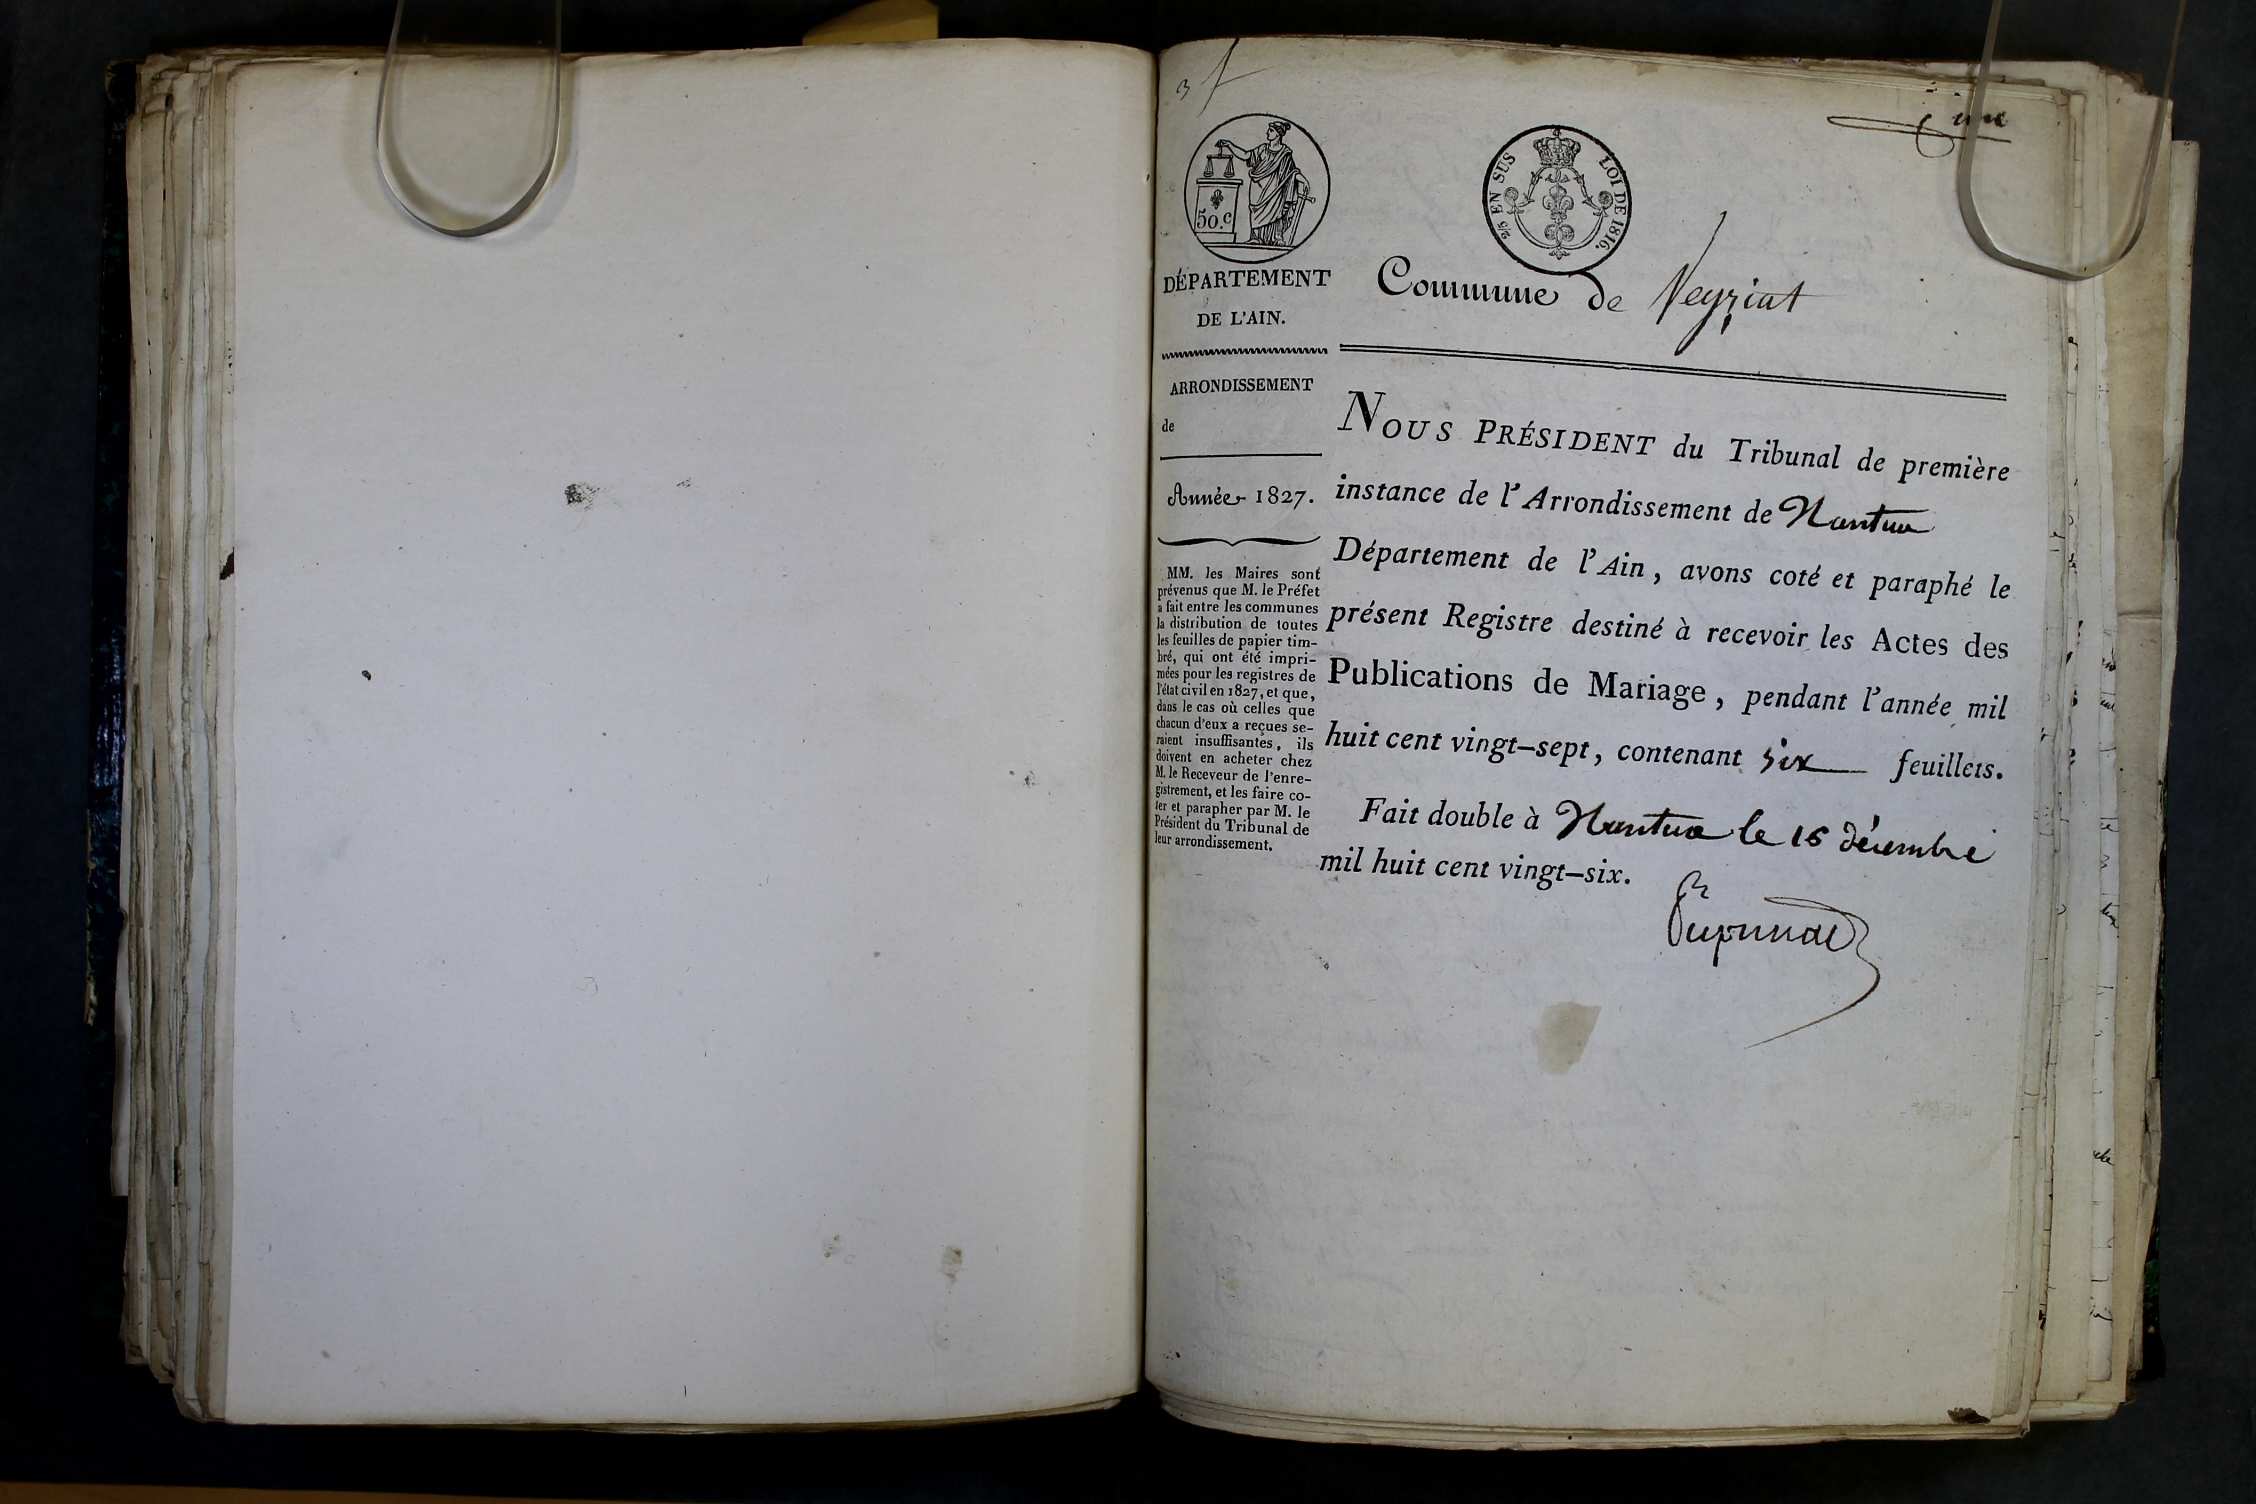 une
50.c
2/5 EN SUS LOI DE 1816.
DÉPARTEMENT
DE L'AIN.
Commune de Veyziat
ARRONDISSEMENT
de
Année 1827.
MM. les Maires sont
prévenus que M. le Préfet
a fait entre les communes
la distribution de toutes
les feuilles de papier tim-
bré, qui ont été impri-
mées pour les registres de
l'état civil en 1827, et que,
dans le cas où celles que
chacun d'eux a reçues se-
raient insuffisantes, ils
doivent en acheter chez
M. le Receveur de l'enre-
gistrement, et les faire co-
ter et parapher par M. le
Président du Tribunal de
leur arrondissement.
NOUS PRÉSIDENT du Tribunal de première
instance de l'Arrondissement de Nantua
Département de l'Ain, avons coté et paraphé le
présent Registre destiné à recevoir les Actes des
Publications de Mariage, pendant l'année mil
huit cent vingt-sept, contenant six feuillets.
Fait double à Nantua le 16 décembre
mil huit cent vingt-six.